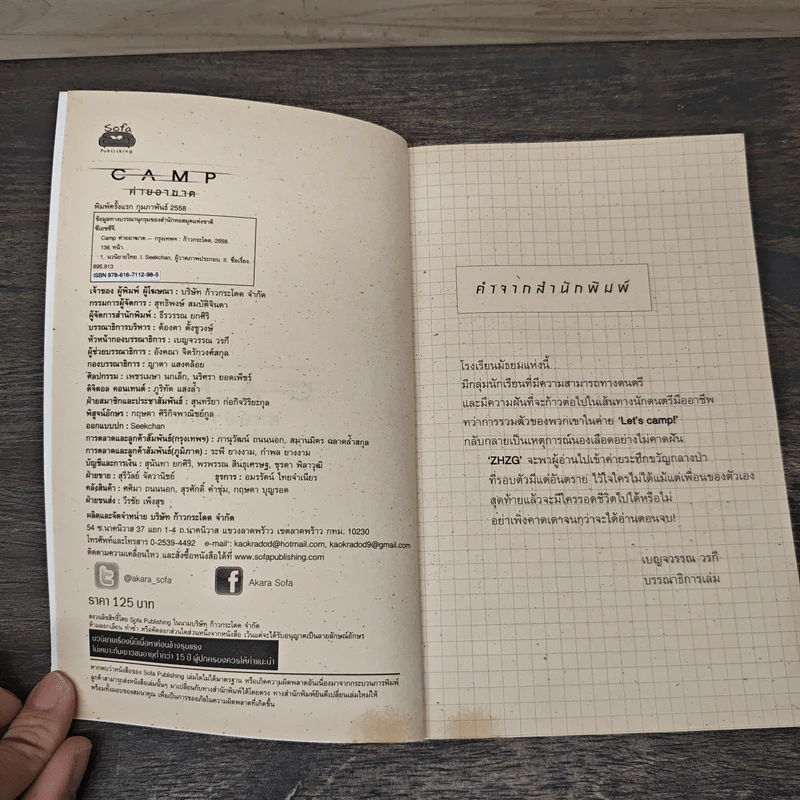 Sofa
Publishing
CAMP
ค่ายอาฆาต
พิมพ์ครั้งแรก กุมภาพันธ์ 2558
ข้อมูลทางบรรณานุกรมของสำนักหอสมุดแห่งชาติ
ซีเอชซีจี.
Camp ค่ายอาฆาต.-- กรุงเทพฯ : ก้าวกระโดด, 2558.
136 หน้า.
1. นวนิยายไทย. I. Seekchan, ผู้วาดภาพประกอบ. II. ชื่อเรื่อง.
895.913
ISBN 978-616-7112-98-5
เจ้าของ ผู้พิมพ์ ผู้โฆษณา : บริษัท ก้าวกระโดด จำกัด
กรรมการผู้จัดการ : สุทธิพงษ์ สมบัติจินดา
ผู้จัดการสำนักพิมพ์ : ธีรวรรณ ยกศิริ
บรรณาธิการบริหาร : ต้องตา ตั้งชูวงษ์
หัวหน้ากองบรรณาธิการ : เบญจวรรณ วรกี
ผู้ช่วยบรรณาธิการ : อังคณา จิตรักวงศ์สกุล
กองบรรณาธิการ : ญาดา แสงคล้อย
ศิลปกรรม : เพชรเมษา นกเล็ก, นริศรา ยอดเพียร์
ดิจิตอล คอนเทนต์ : ภูริทัต แสงล้ำ
ฝ่ายสมาชิกและประชาสัมพันธ์ : สุนทรียา ก่อกิจวิริยะกุล
พิสูจน์อักษร : กฤษดา ศิริกิจพาณิชย์กุล
ออกแบบปก : Seekchan
การตลาดและลูกค้าสัมพันธ์(กรุงเทพฯ) : ภานุวัฒน์ ถนนนอก, สมานมิตร ฉลาดล้ำสกุล
การตลาดและลูกค้าสัมพันธ์(ภูมิภาค) : ระพี ยางงาม, กำพล ยางงาม
บัญชีและการเงิน : สุนันทา ยกศิริ, พรพรรณ สินธุเศรษฐ, ชุรดา พิลาวุฒิ
ฝ่ายขาย : สุรีวัลย์ จัดวานิชย์ ธุรการ : อมรรัตน์ ไทยจำเนียร
คลังสินค้า : คศิมา ถนนนอก, สุรศักดิ์ คำชุ่ม, กฤษดา บุญรอด
ฝ่ายขนส่ง : วีรชัย เพ็งสุข
ผลิตและจัดจำหน่าย บริษัท ก้าวกระโดด จำกัด
54 ซ.นาคนิวาส 37 แยก 1-4 ถ.นาคนิวาส แขวงลาดพร้าว เขตลาดพร้าว กทม. 10230
โทรศัพท์และโทรสาร 0-2539-4492 e-mail : kaokradod@hotmail.com, kaokradod9@gmail.com
ติดตามความเคลื่อนไหว และสั่งซื้อหนังสือได้ที่ www.sofapublishing.com
@akara_sofa
Akara Sofa
ราคา 125 บาท
สงวนลิขสิทธิ์โดย Sofa Publishing ในนามบริษัท ก้าวกระโดด จำกัด
ห้ามลอกเลียน ทำซ้ำ หรือคัดลอกส่วนใดส่วนหนึ่งจากหนังสือ เว้นแต่จะได้รับอนุญาตเป็นลายลักษณ์อักษร
นวนิยายเรื่องนี้มีเนื้อหาค่อนข้างรุนแรง
ไม่เหมาะกับเยาวชนอายุต่ำกว่า 15 ปี ผู้ปกครองควรให้คำแนะนำ
หากพบว่าหนังสือของ Sofa Publishing เล่มใดไม่ได้มาตรฐาน หรือเกิดความผิดพลาดอันเนื่องมาจากกระบวนการพิมพ์
ลูกค้าสามารถส่งหนังสือเล่มนั้นๆ มาเปลี่ยนกับทางสำนักพิมพ์ได้โดยตรง ทางสำนักพิมพ์ยินดีเปลี่ยนเล่มใหม่ให้
พร้อมทั้งมอบของสมนาคุณ เพื่อเป็นการขออภัยในความผิดพลาดที่เกิดขึ้น
คำจากสำนักพิมพ์
โรงเรียนมัธยมแห่งนี้
มีกลุ่มนักเรียนที่มีความสามารถทางดนตรี
และมีความฝันที่จะก้าวต่อไปในเส้นทางนักดนตรีมืออาชีพ
ทว่าการรวมตัวของพวกเขาในค่าย 'Let's camp!'
กลับกลายเป็นเหตุการณ์นองเลือดอย่างไม่คาดฝัน
'ZHZG' จะพาผู้อ่านไปเข้าค่ายระทึกขวัญกลางป่า
ที่รอบตัวมีแต่อันตราย ไว้ใจใครไม่ได้แม้แต่เพื่อนของตัวเอง
สุดท้ายแล้วจะมีใครรอดชีวิตไปได้หรือไม่
อย่าเพิ่งคาดเดาจนกว่าจะได้อ่านตอนจบ!
เบญจวรรณ วรกี
บรรณาธิการเล่ม